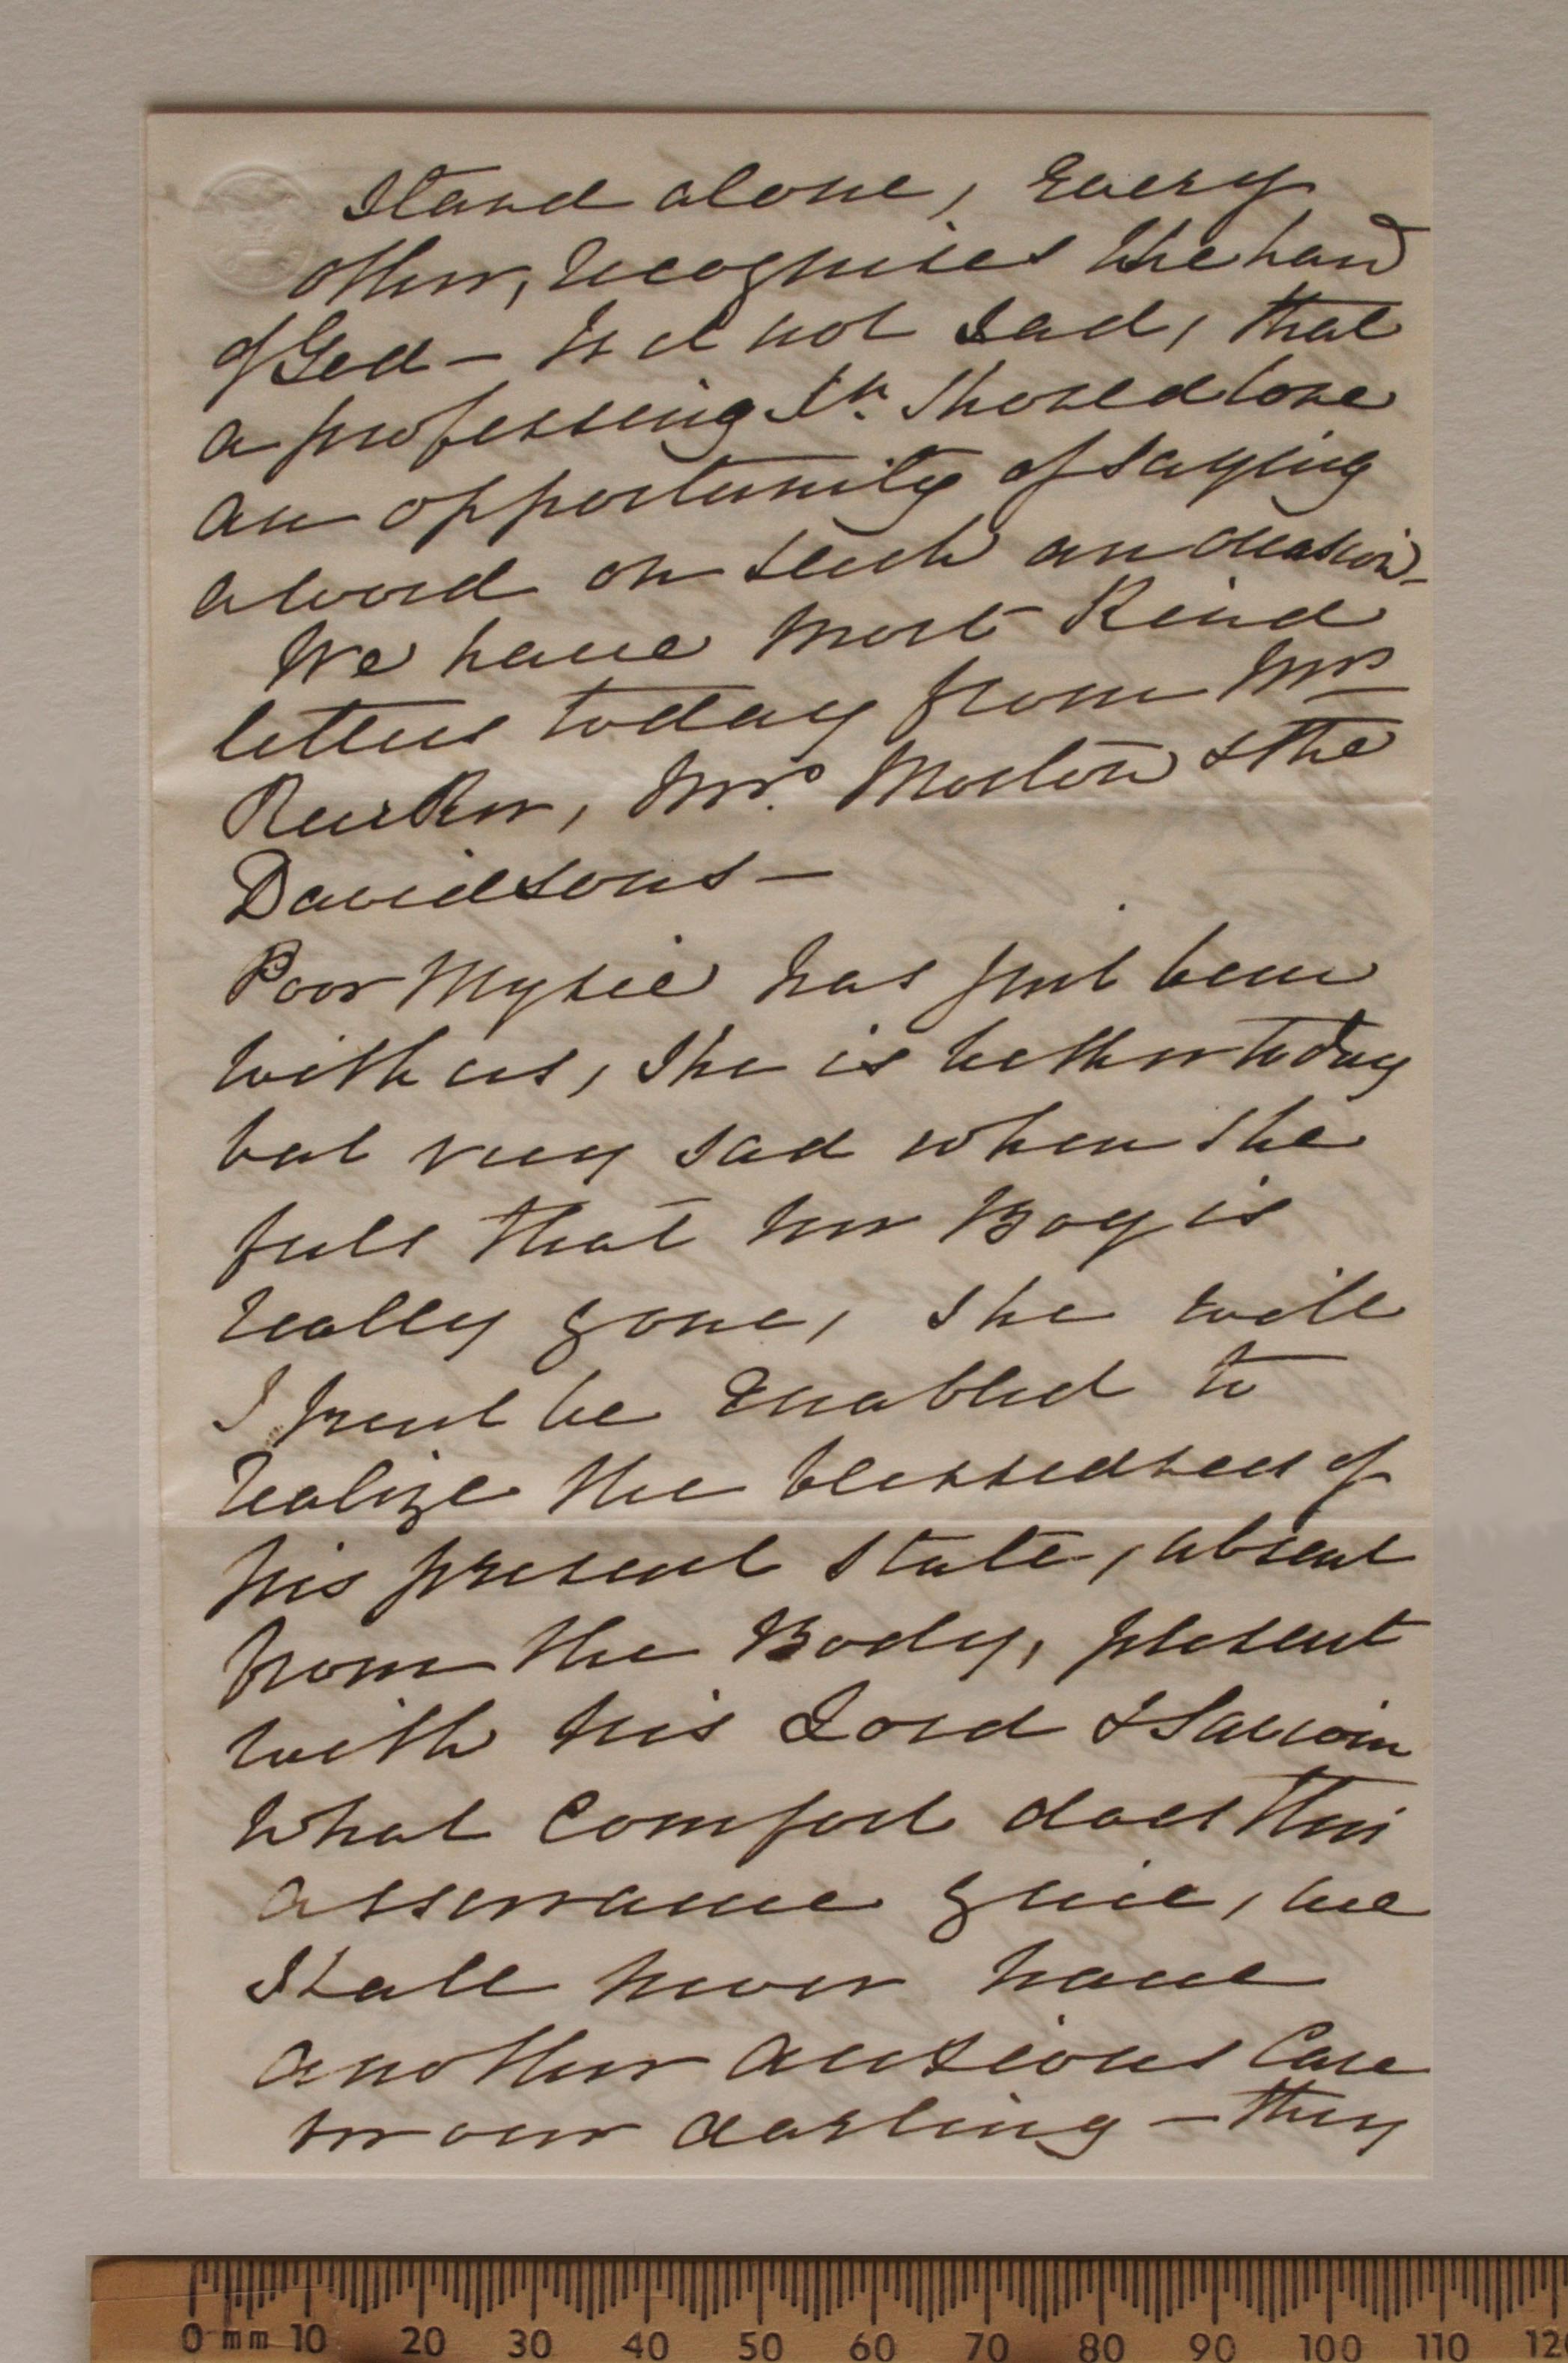 Stand alone, Every
other, recognises the hand
of God — Is it not sad, that
a professing Xn. should lose
an opportunity of saying
a word on such an occasion -
We have most Kind
letters today from Mrs
Mrs. Morton & the
Davidsons —
Poor Mysie has just been
with us, She is better today
but very sad when she
feels that her Boy is
really gone, she will
I trust be Enabled to
realize the blessedness of
his present state, absent
from the Body, present
with his Lord & Saviour
What Comfort does this
assurance give, we
Shall never have
another anxious Care
for our darling — they
0 mm 10 20 30 40 50 60 70 80 90 100 110 120